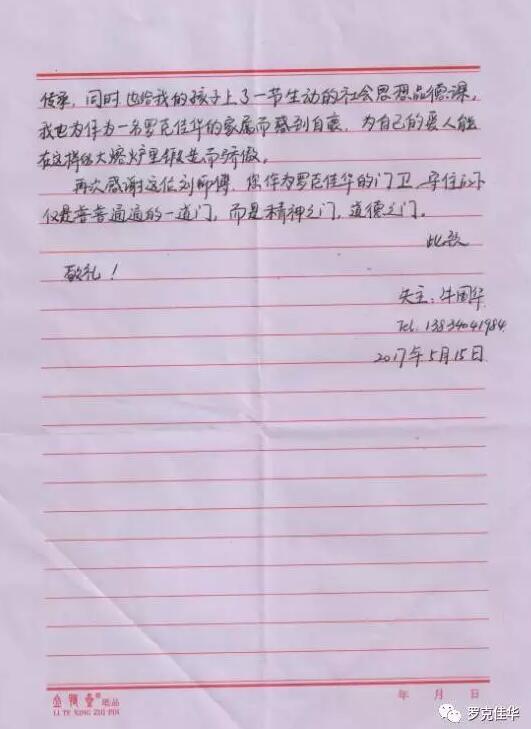 传承,同时也给我的孩子上了一节生动的社会思想品德课,
我也为作为一名罗克佳华的家属而感到自豪,为自己的爱人能
在这样的大熔炉里锻造而骄傲。
再次感谢这位刘师傅,您作为罗克佳华的门卫,守住的不
仅是普普通通的一道门,而是精神之门,道德之门。
此致
敬礼!
失主:牛国华
Tel. 13834041984
2017年5月15日
纸品
LI TE XING ZHI PIN
年 月 日
罗克佳华